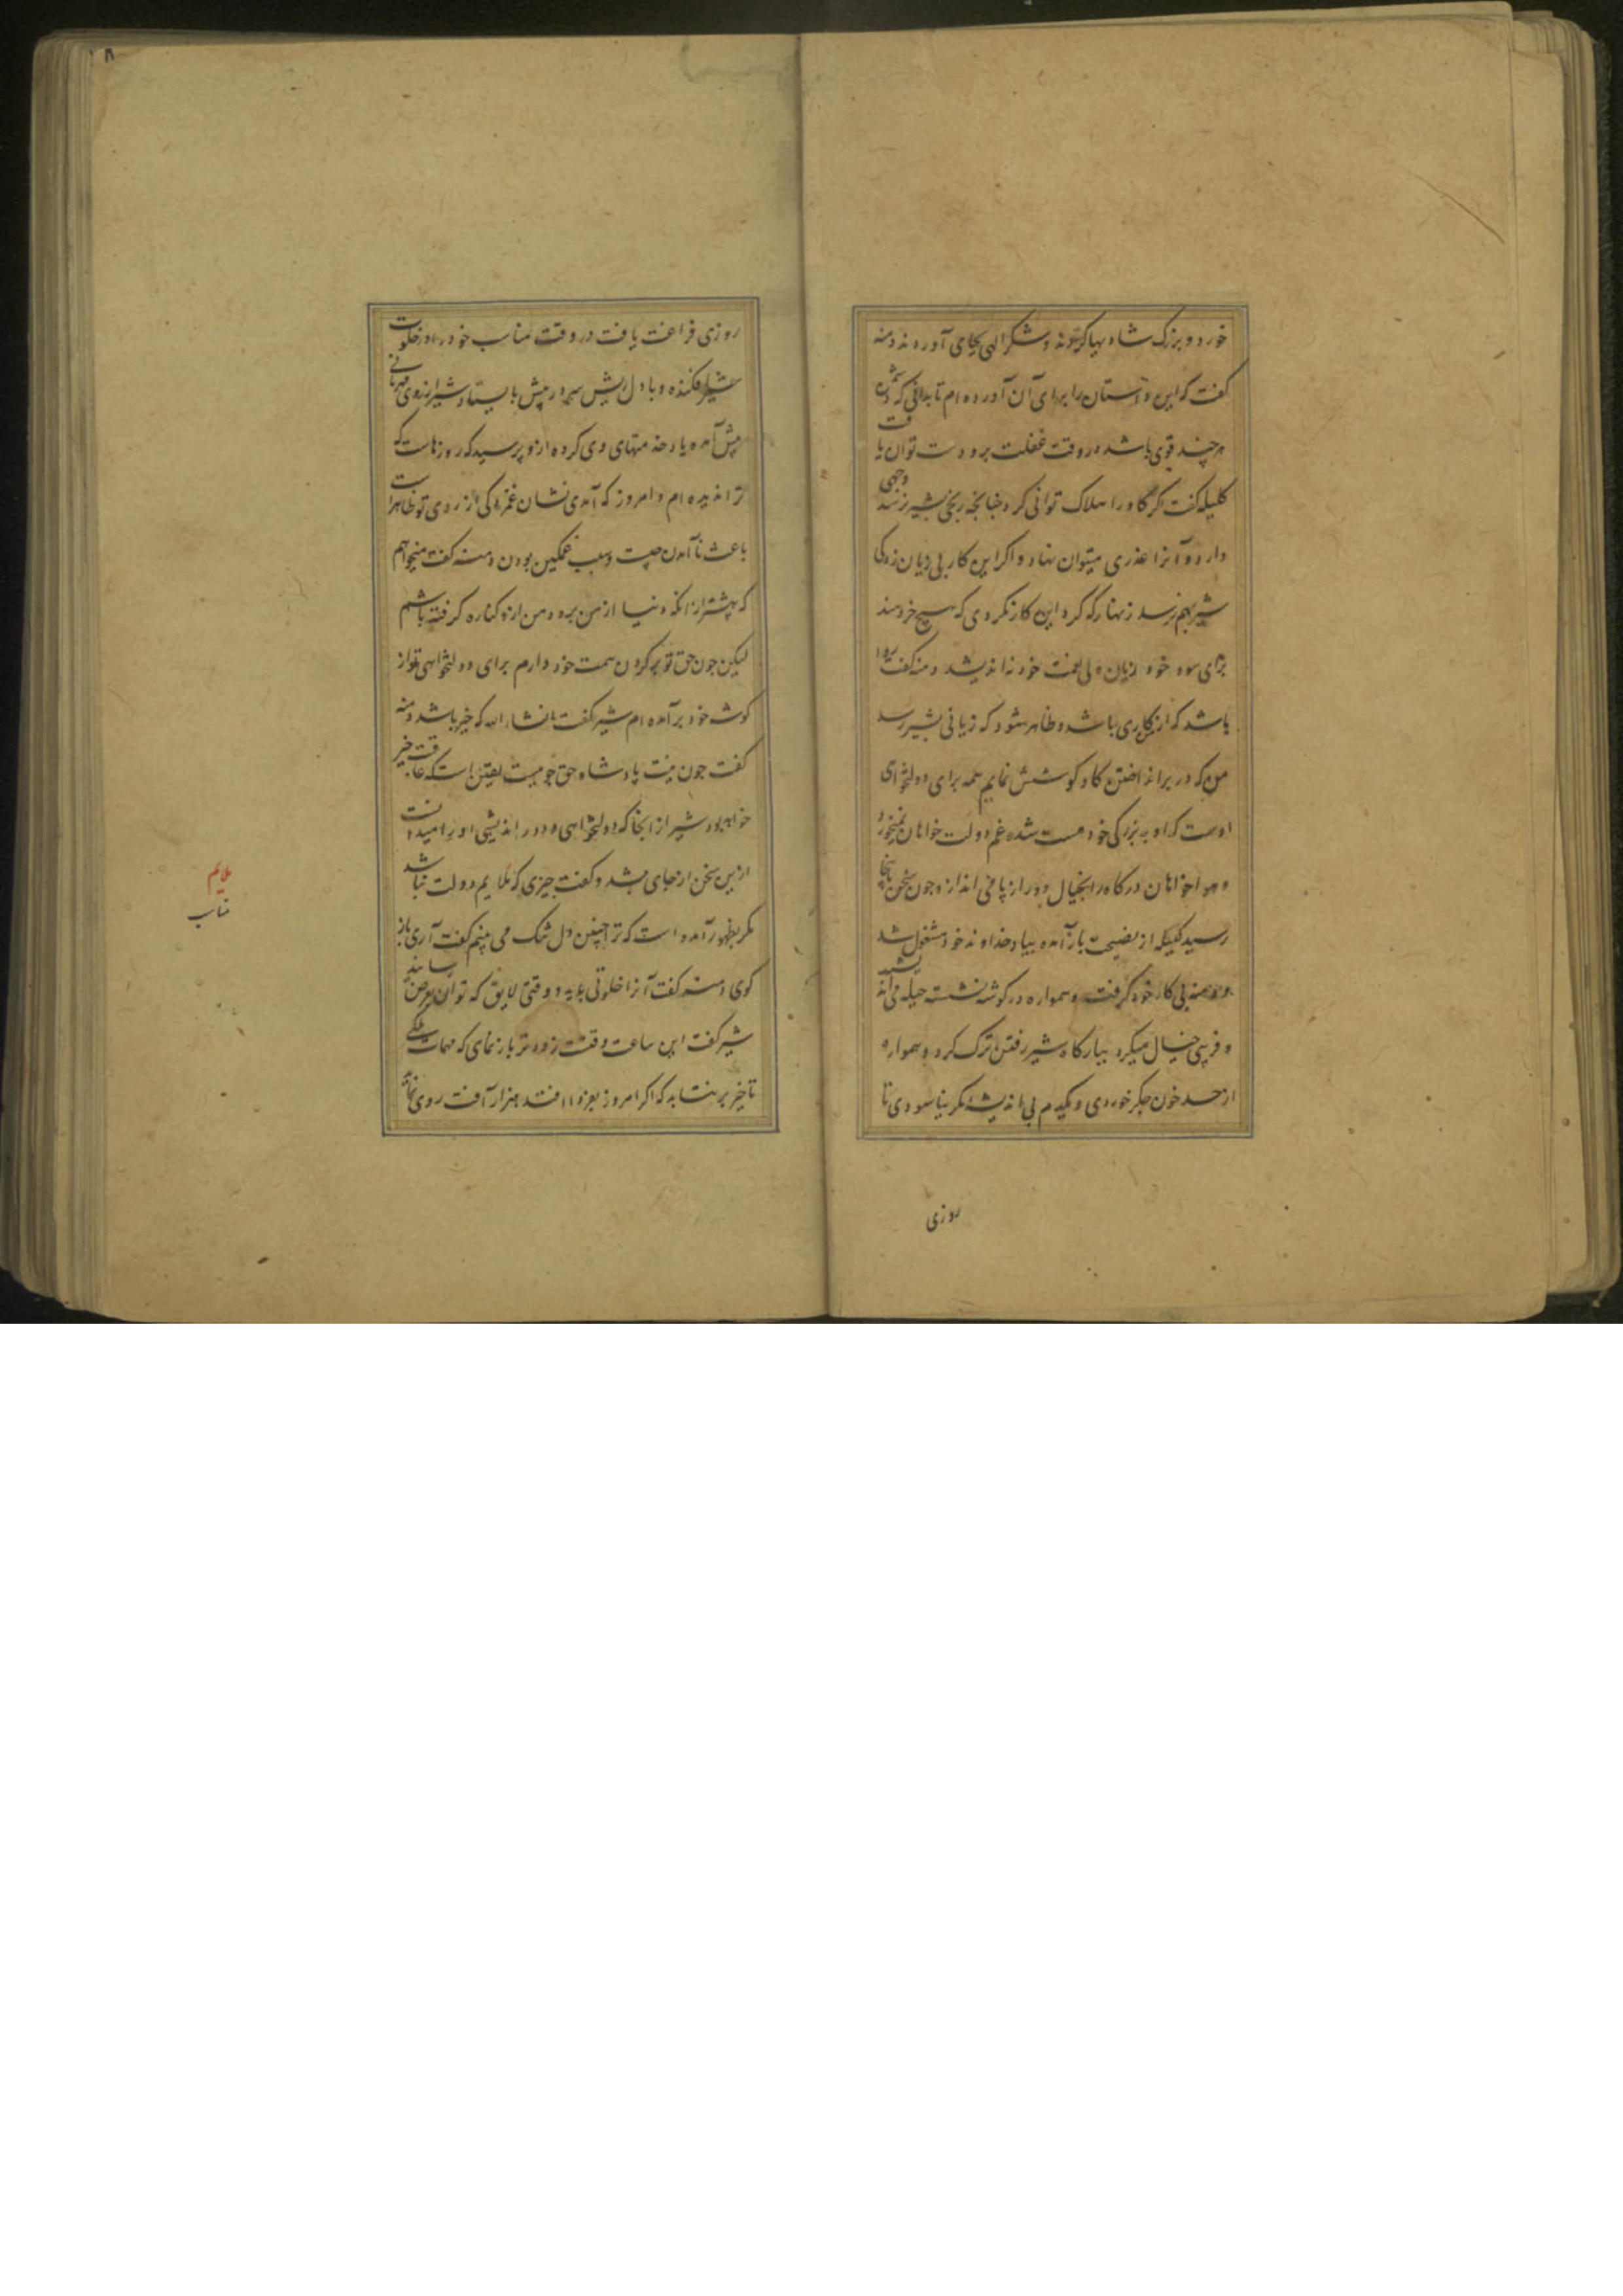 خورد و بزرک شاد
شکر الهی بجای آوردند دمنه
کفت که این داستان را برای آن آورده ام تا بدانی که دشمن
هر چند قوی باشد در وقت غفلت برو دست توان یافت
کلیله کفت اکر کاو را هلاک توانی کرد چنانچه رنجی بشیر نرسد وجهی
دارد و آنرا عذری میتوان نهاد و اکر این کار بی زیان زدکی
شیر بهم نرسد زنهار که کرد این کار نکردی که هیچ خردمند
برای سود خود زیان ولی نعمت خود نه اندیشد دمنه کفت روا
باشد که ازین کاری باشد و ظاهر شود که زیانی بشیر رسد
من که در برانداختن کاو کوشش نمایم همه برای دولتخواهی
اوست که او به بزرکی خود مست شده غم دولت خواهان نمیخورد
و هواخواهان درکاه را بخیال دور از پا می اندازد چون سخن باینجا
رسید کلیله از نصیحت باز آمده بیاد خداوند خود مشغول شد
و دمنه پی کار خود کرفت و همواره در کوشه نشسته حیله می اندیشید
و فریبی خیال میکرد ببارکاه شیر رفتن ترک کرد و همواره
از حسد خون جکر خوردی و یکدم بی اندیشه مکر نیاسودی تا
روزی
روزی فراغت یافت در وقت مناسب خود را در خلوت
شیر افکنده و با دل ریش سر در پیش بایستاد شیر از روی مهربانی
پیش آمده یاد خدمتهای وی کرده ازو پرسید که روزهاست که
ترا ندیده ام و امروز که آمدی نشان غمناکی از روی تو ظاهر است
باعث نآمدن چیست و سبب غمکین بودن دمنه کفت میخواهم
که پیشتر ازانکه دنیا از من برود من ازو کناره کرفته باشم
لیکن چون حق تو بر کردن همت خود دارم برای دولتخواهی تو از
کوشه خود برآمده ام شیر کفت انشاء الله که خیر باشد دمنه
کفت چون نیت پادشاه حق جوییست یقین است که عاقبت خیر
خواهد بود شیر از انجا که دولتخواهی و دور اندیشی او را میدانست
ازین سخن از جای شد و کفت چیزی که ملایم دولت نباشد
مکر بظهور آمده است که ترا چنین دل تنک می بینم کفت آری باز
کوی دمنه کفت آنرا خلوتی باید و وقتی لایق که توان بعرض رسانید
شیر کفت این ساعت وقتست زودتر باز نمای که مهمات ملکی
تاخیر برنتابد که اکر امروز بفردا افتد هزار آفت روی نماید
ملایم
مناسب